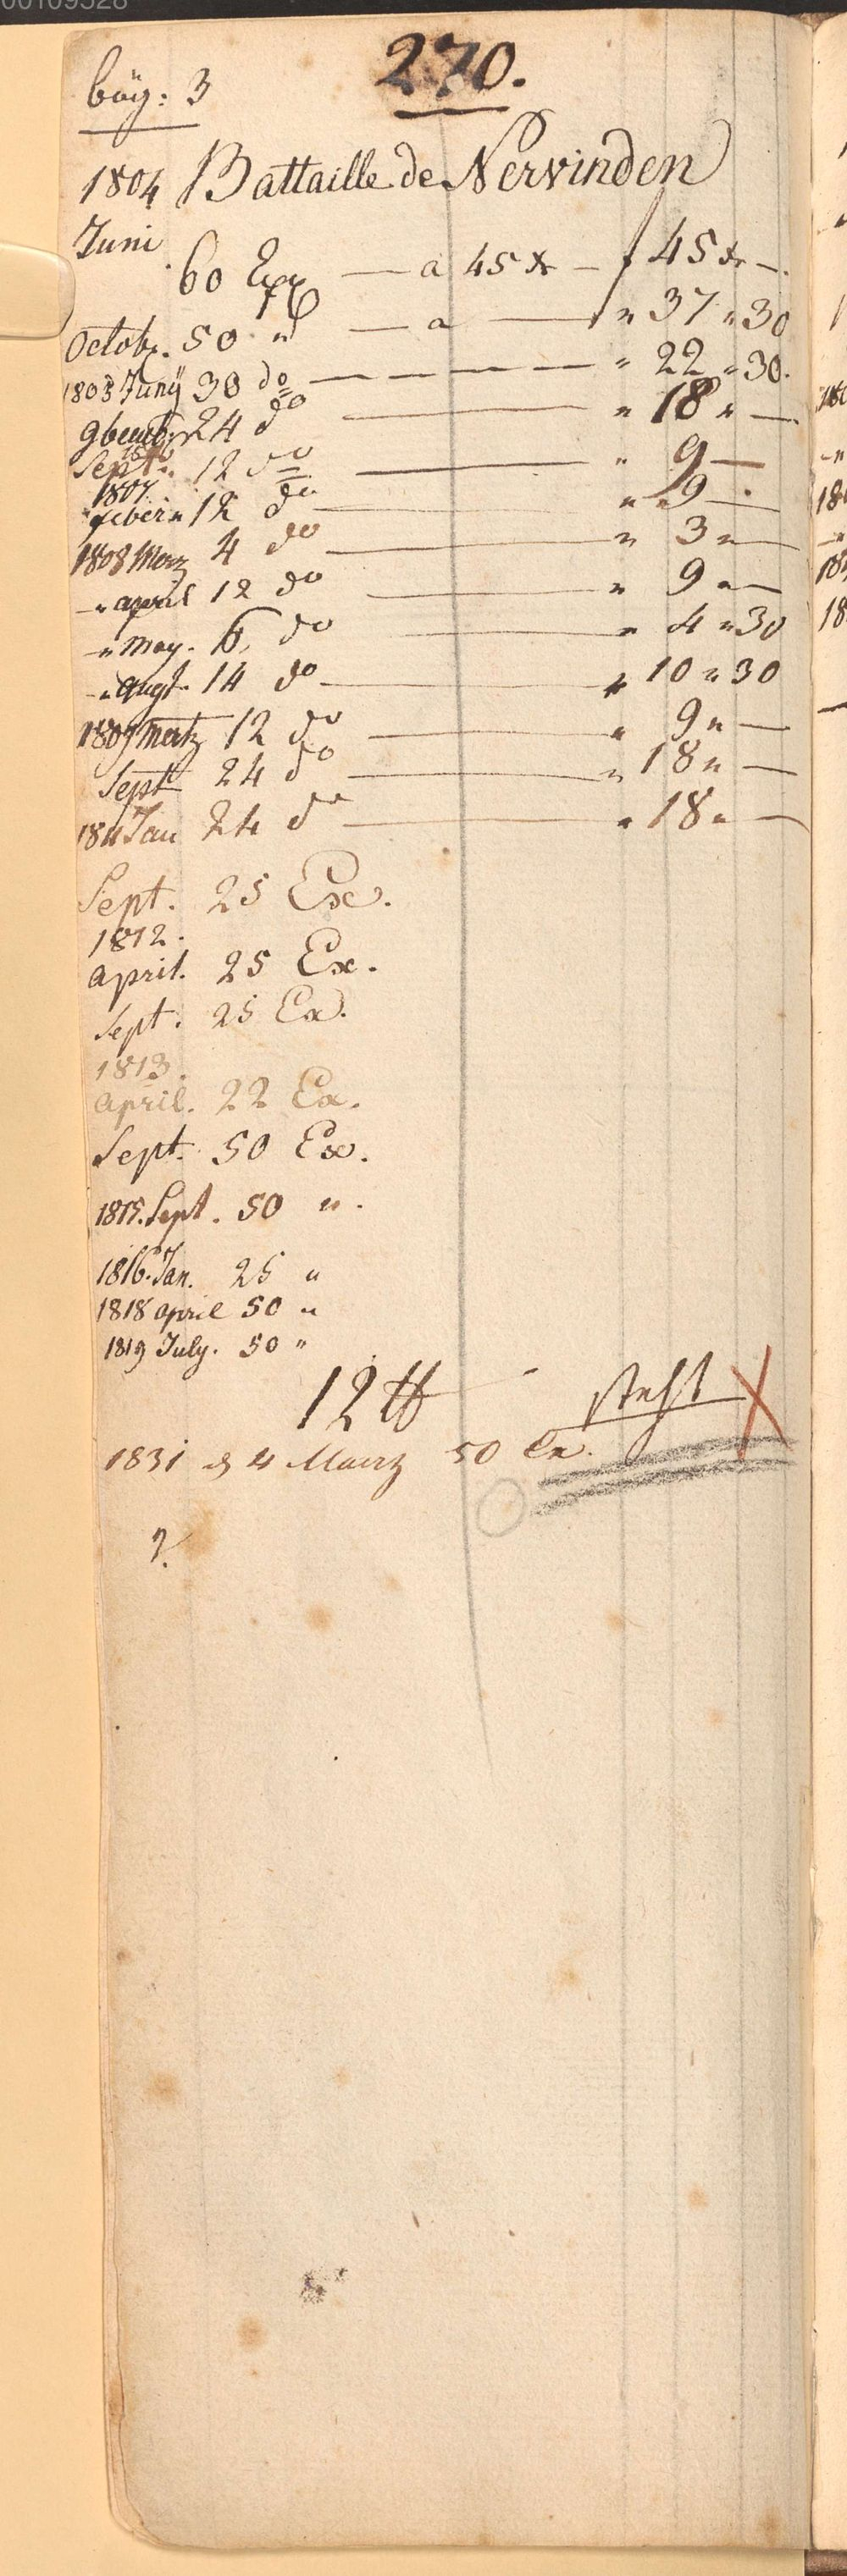 00109528
270.
bög: 3
1804 Battaille de Nervinden
Juni
60 Exp — a 45 xr — f 45 xr —.
Octobr. 50 " — a — " 37 " 30
1805 Junÿ 30 do — " 22 " 30.
9bember 24 do — " 18 " —
Septbr. 12 do — " 9 —
1807.
12 do — " 9 —
1808 Merz 4 do — " 3 " —
— " april 12 do — " 9 " —
— " may. 6 do — " 4 " 30
— " augt. 14 do — " 10 " 30
1809 Mertz 12 do — " 9 " —
Sept 24 do — " 18 " —
1811 Jan 24 do — " 18 " —
Sept. 25 Ex.
1812.
april. 25 Ex.
Sept. 25 Ex.
1813.
april. 22 Ex.
Sept. 50 Ex.
1815. Sept. 50 ".
1816. Jan. 25 "
1818 april 50 "
1819 July. 50 "
12 ℔ steht X
1831 d 4 Maerz 50 Ex.